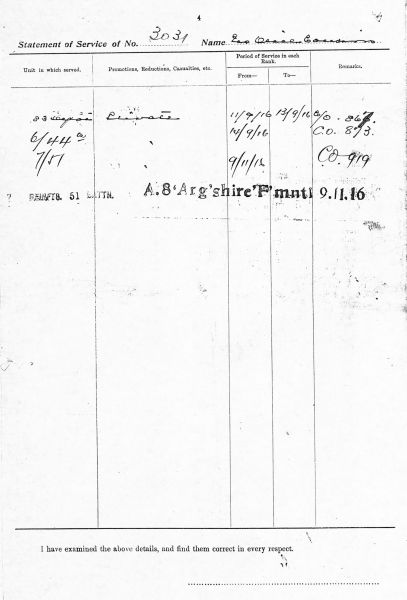 4
Statement of Service of No. 3031 Name Geo
Unit in which served. Promotions, Reductions, Casualties, etc. Period of Service in each Rank. From— To— Remarks.
Private 11/9/16 13/9/16 C/O. 867.
6/44 14/9/16 C.O. 873
7/51 9/11/16 CO. 919
7 REINFTS. 51 BATTN. A.8 'Arg'shire 'F'mntl 9.11.16
I have examined the above details, and find them correct in every respect.